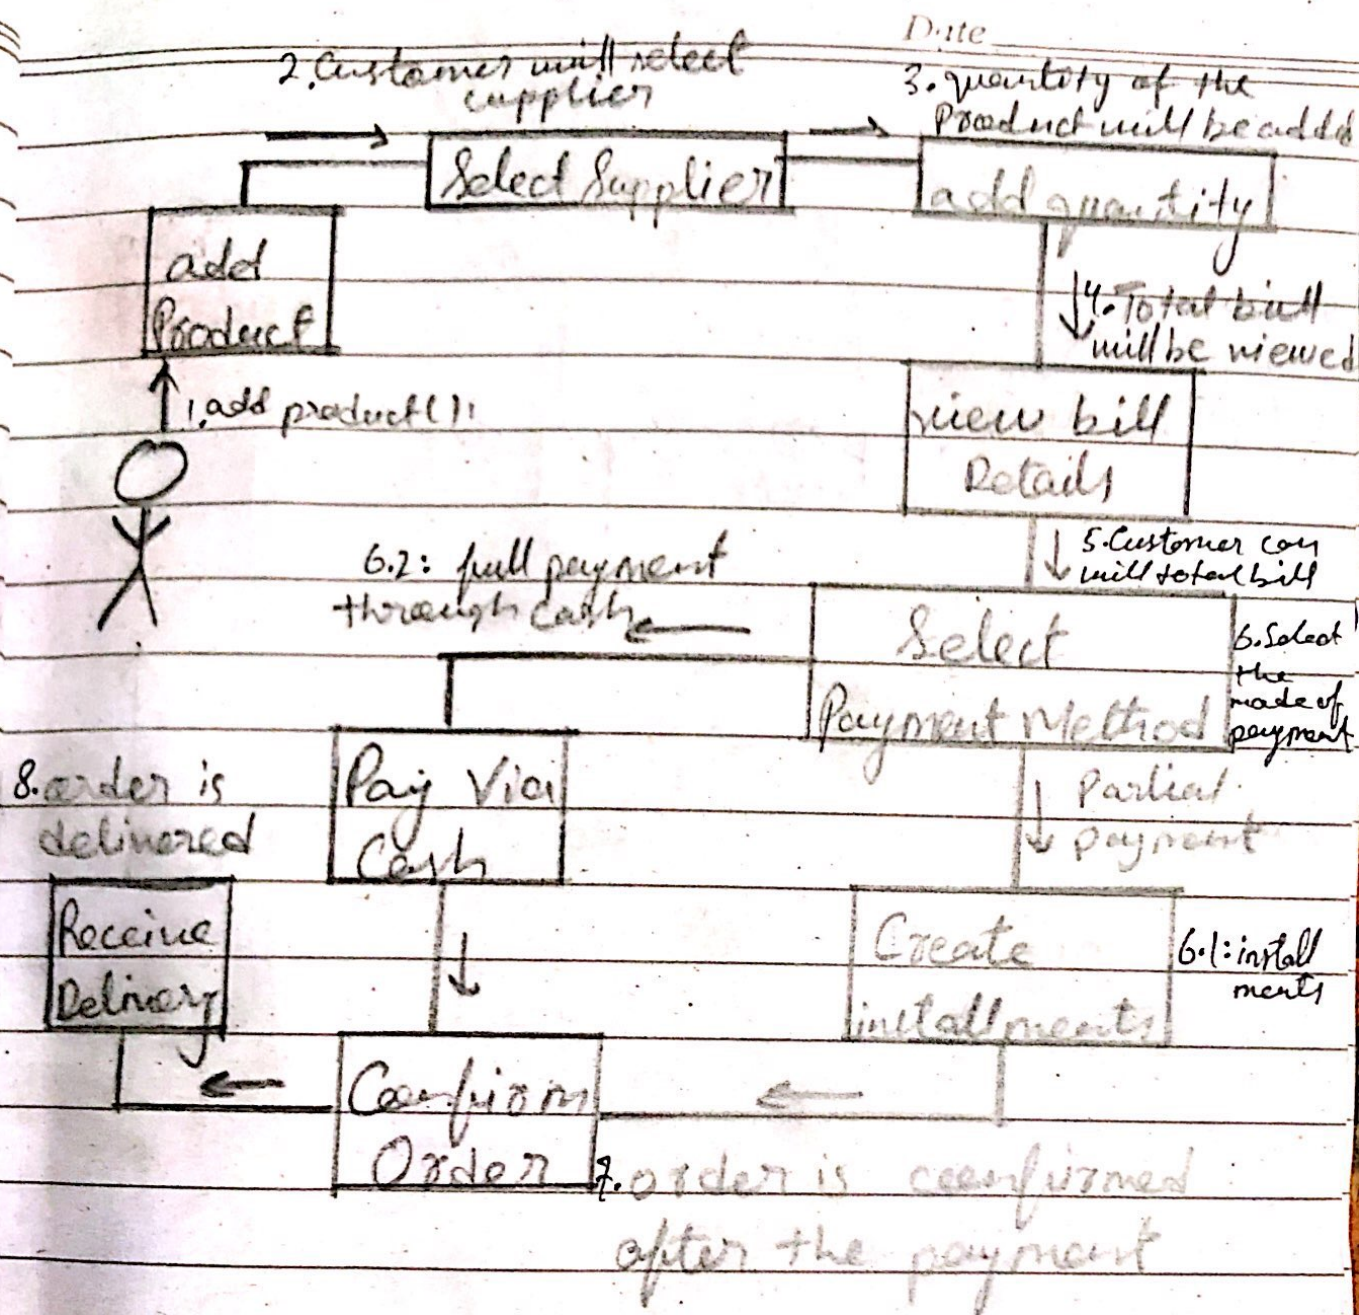 Date
2. Customer will select
supplier
3. quantity of the
Product will be added
Select Supplier
add quantity
add
Product
4. Total bill
will be viewed
1. add product():
view bill
Details
5. Customer can
will total bill
6.2: full payment
through cash
Select
Payment Method
6. Select
the
mode of
payment
8. order is
delivered
Pay Via
Cash
Partial
payment
Receive
Delivery
Create
installments
6.1: install
ments
Confirm
Order
7. order is confirmed
after the payment